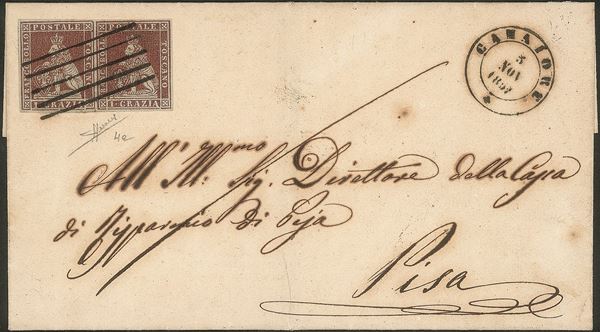 FRANCOBOLLO POSTALE FRANCOBOLLO POSTALE TOSCANO
1 GRAZIA 1 GRAZIA
CAMAIORE
5
NOV
4a
All' Ill:mo Sig. Direttore della Cassa
di Risparmio di Pisa
Pisa